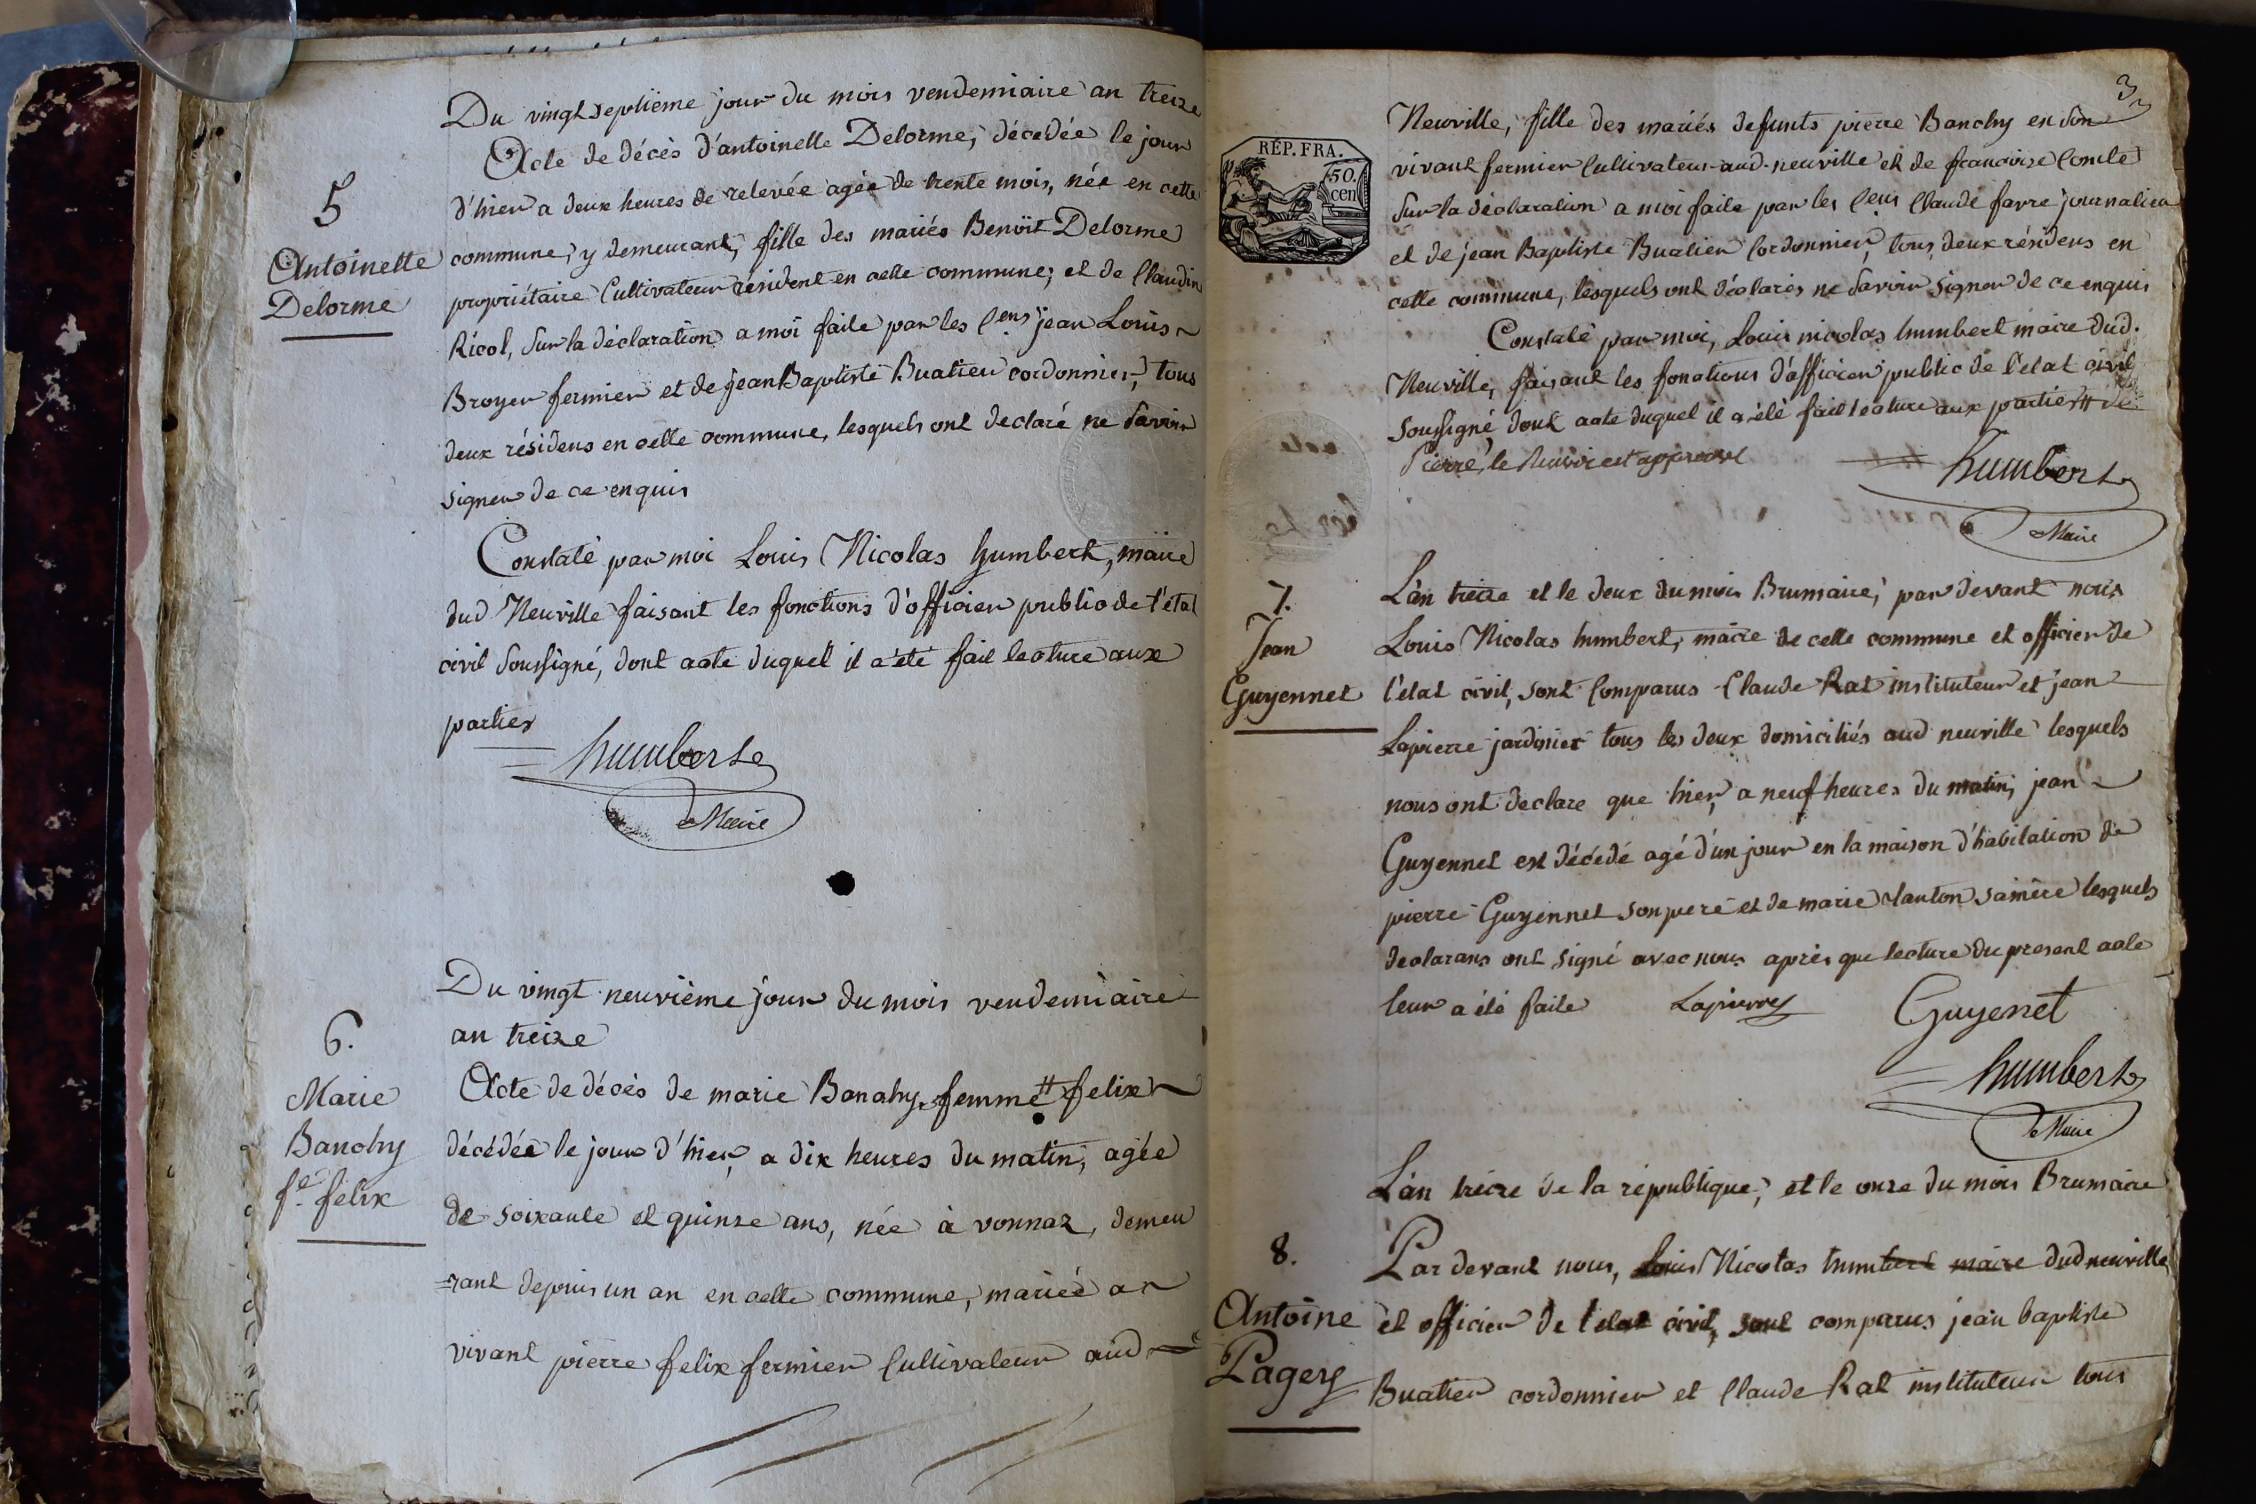 Du vingt septième jour du mois vendemiaire an treize
Acte de décès d'antoinette Delorme, décedée le jour
d'hier a deux heures de relevée agée de trente mois, née en cette
5
Antoinette
Delorme
commune, y demeurant, fille des mariés Benoît Delorme
propriétaire Cultivateur résident en cette commune; et de Claudin
Ricol, Sur la déclaration a moi faite par les Cens jean Louis
Broyer fermier et de jean Baptiste Buatier cordonnier, tous
deux résidens en cette commune, lesquels ont declaré ne Savoir
signer de ce enquis
Constaté par moi Louis Nicolas humbert, maire
dud Neuville faisant les fonctions d'officier public de l'état
civil Soussigné, dont acte duquel il a été fait lecture aux
parties
humbert
Maire
Du vingt neuvième jour du mois vendemiaire
an treize
6.
Marie
Banchy
fe felix
Acte de décès de marie Banchy femme # felix
décédée le jour d'hier, a dix heures du matin, agée
de soixante et quinze ans, née à vonnaz, demeu
=rant depuis un an en cette commune, mariée a
vivant pierre felix fermier Cultivateur aud
3
RÉP. FRA.
50.
cen
Neuville, fille des mariés defunts pierre Banchy en Son
vivant fermier Cultivateur aud. neuville et de francoise Comte
Sur la déclaration a moi faite par les Cens Claude favre journalier
et de jean Baptiste Buatier Cordonnier, tous deux résidens en
cette commune, lesquels ont déclarés ne Savoir Signer de ce enquis
Constaté par moi, Louis nicolas humbert maire dud.
Neuville, faisant les fonctions d'officier public de l'etat civil
Soussigné dont acte duquel il a été fait lecture aux parties # de
Pierre, le renvoi est approuvé
humbert
Maire
7.
Jean
Guyennet
L'an treize et le deux du mois Brumaire, par devant nous
Louis Nicolas humbert, maire de cette commune et officier de
l'etat civil, sont Comparus Claude Rat instituteur et jean
Lapierre jardinier tous les deux domiciliés aud neuville lesquels
nous ont declare que hier, a neuf heures du matin, jean
Guyennet est décédé agé d'un jour en la maison d'habitation de
pierre Guyennet son pere et de marie tanton sa mère lesquels
declarans ont signé avec nous après que lecture du present acte
leur a été faite
Lapierre
Guyenet
humbert
Maire
L'an treize de la république, et le onze du mois Brumaire
8.
Antoine
Pagey
Par devant nous, Louis Nicolas humbert maire dud neuville
et officier de l'etat civil, sont comparus jean baptiste
Buatier cordonnier et Claude Rat instituteur tous